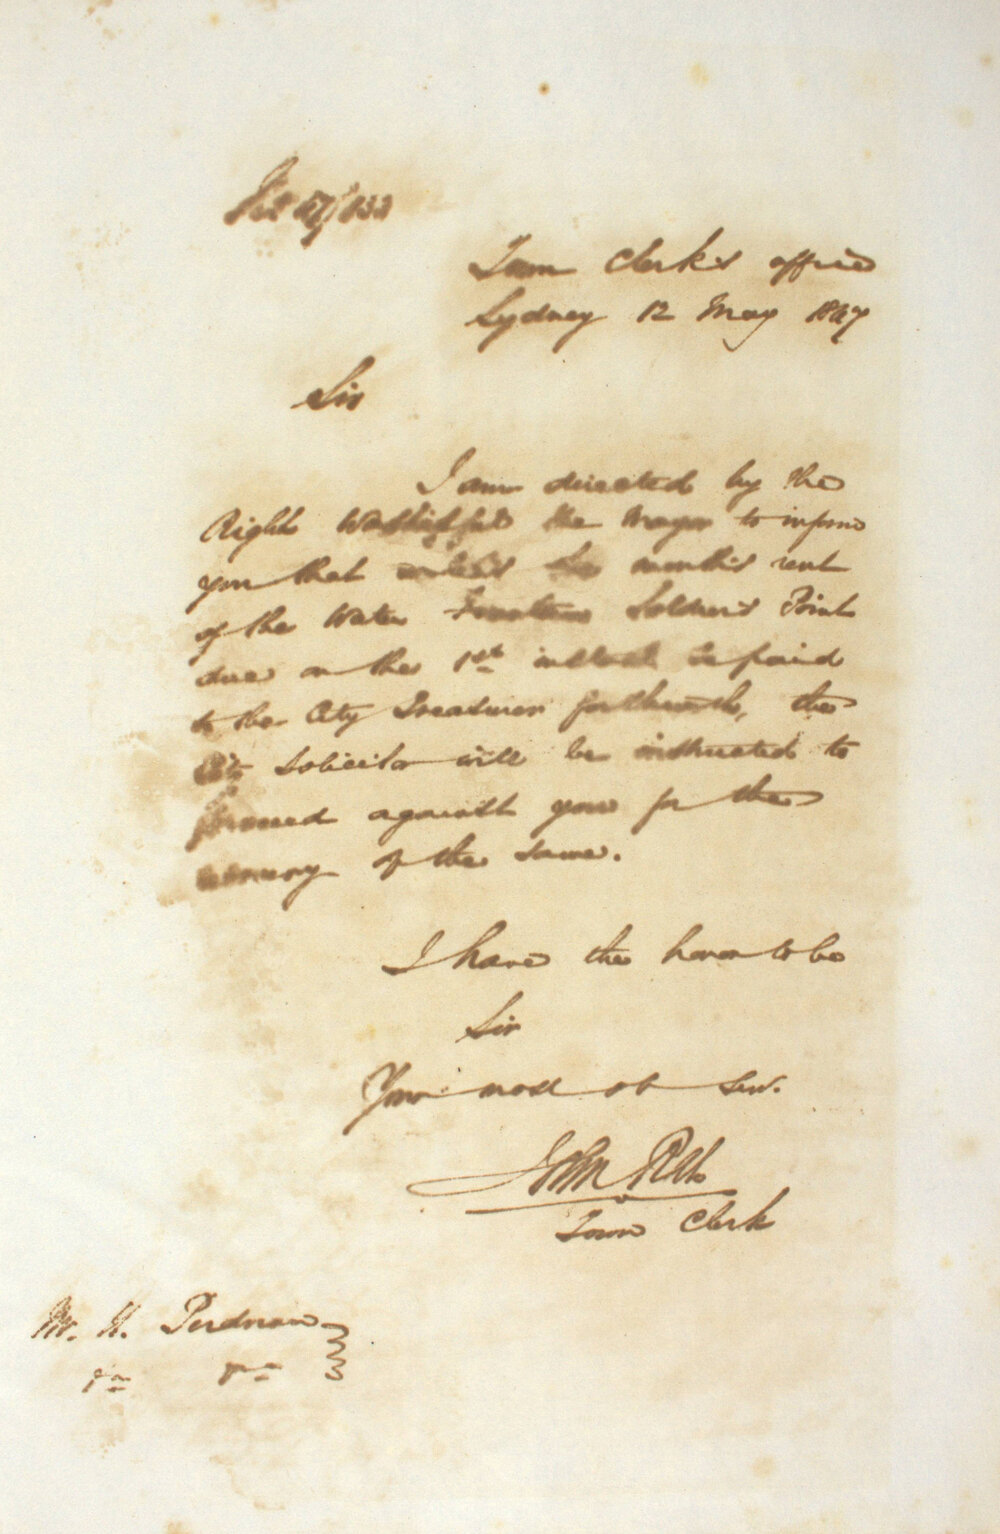 47/133
Town Clerk's office
Sydney 12 May 1847
Sir
I am directed by the
Right Worshipful the Mayor to inform
you that unless months rent
of the Water Fountain Soldier's Point
due on the 1st instant be paid
to the City Treasurer forthwith, the
City Solicitor will be instructed to
proceed against you for the
recovery of the same.
I have the honor to be
Sir
Your most ob Serv.
John
Town Clerk
Mr. H.